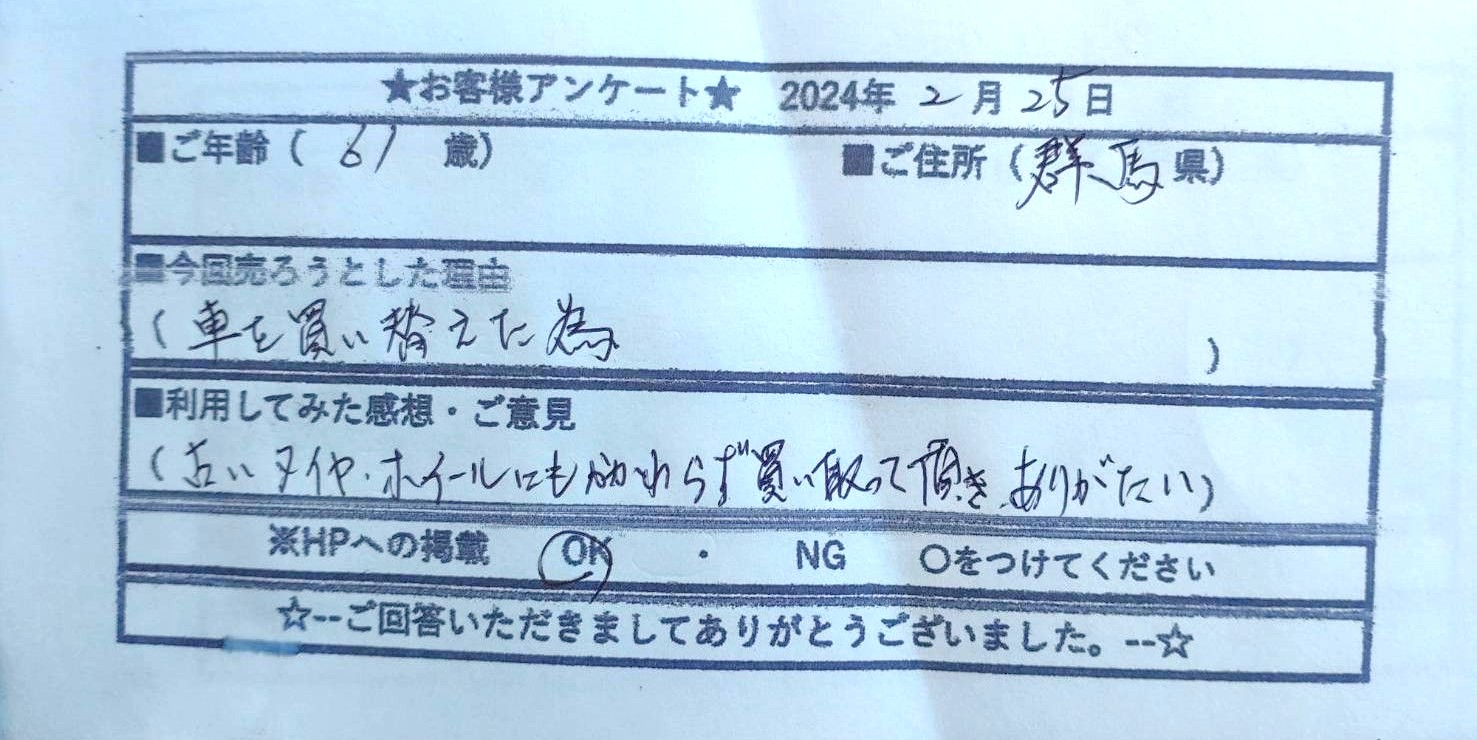 ★お客様アンケート★ 2024年 2月 25日
■ご年齢( 61 歳) ■ご住所(群馬県)
■今回売ろうとした理由
(車を買い替えた為 )
■利用してみた感想・ご意見
(古いタイヤ・ホイールにもかかわらず買い取って頂き、ありがたい)
※HPへの掲載 OK ・ NG ○をつけてください
☆--ご回答いただきましてありがとうございました。--☆